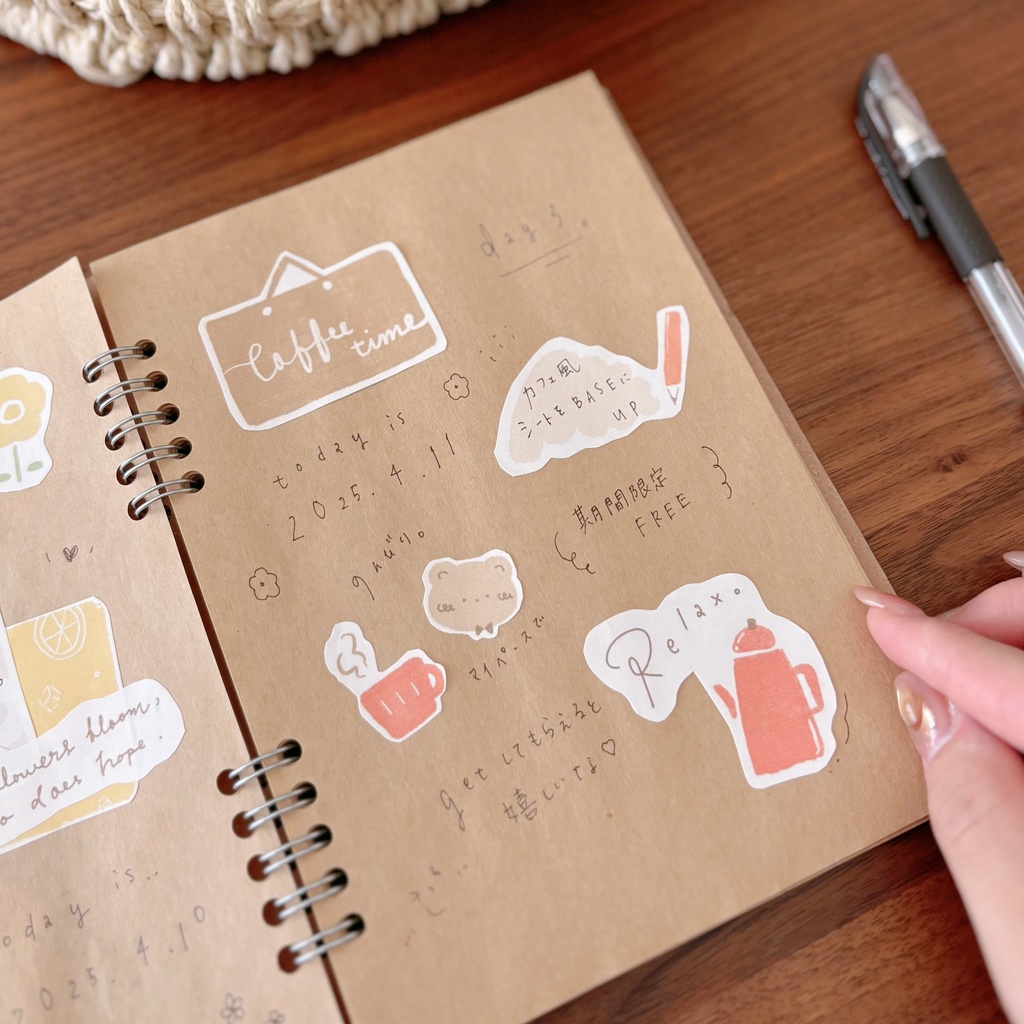 lowers bloom,
o does hope.
oday is..
2025. 4. 10
day 3.
Coffee
time
today is
2025. 4. 11
カフェ風
シートをBASEに
UP
期間限定
FREE
マイペースで
Relax。
getしてもらえると
嬉しいな♡